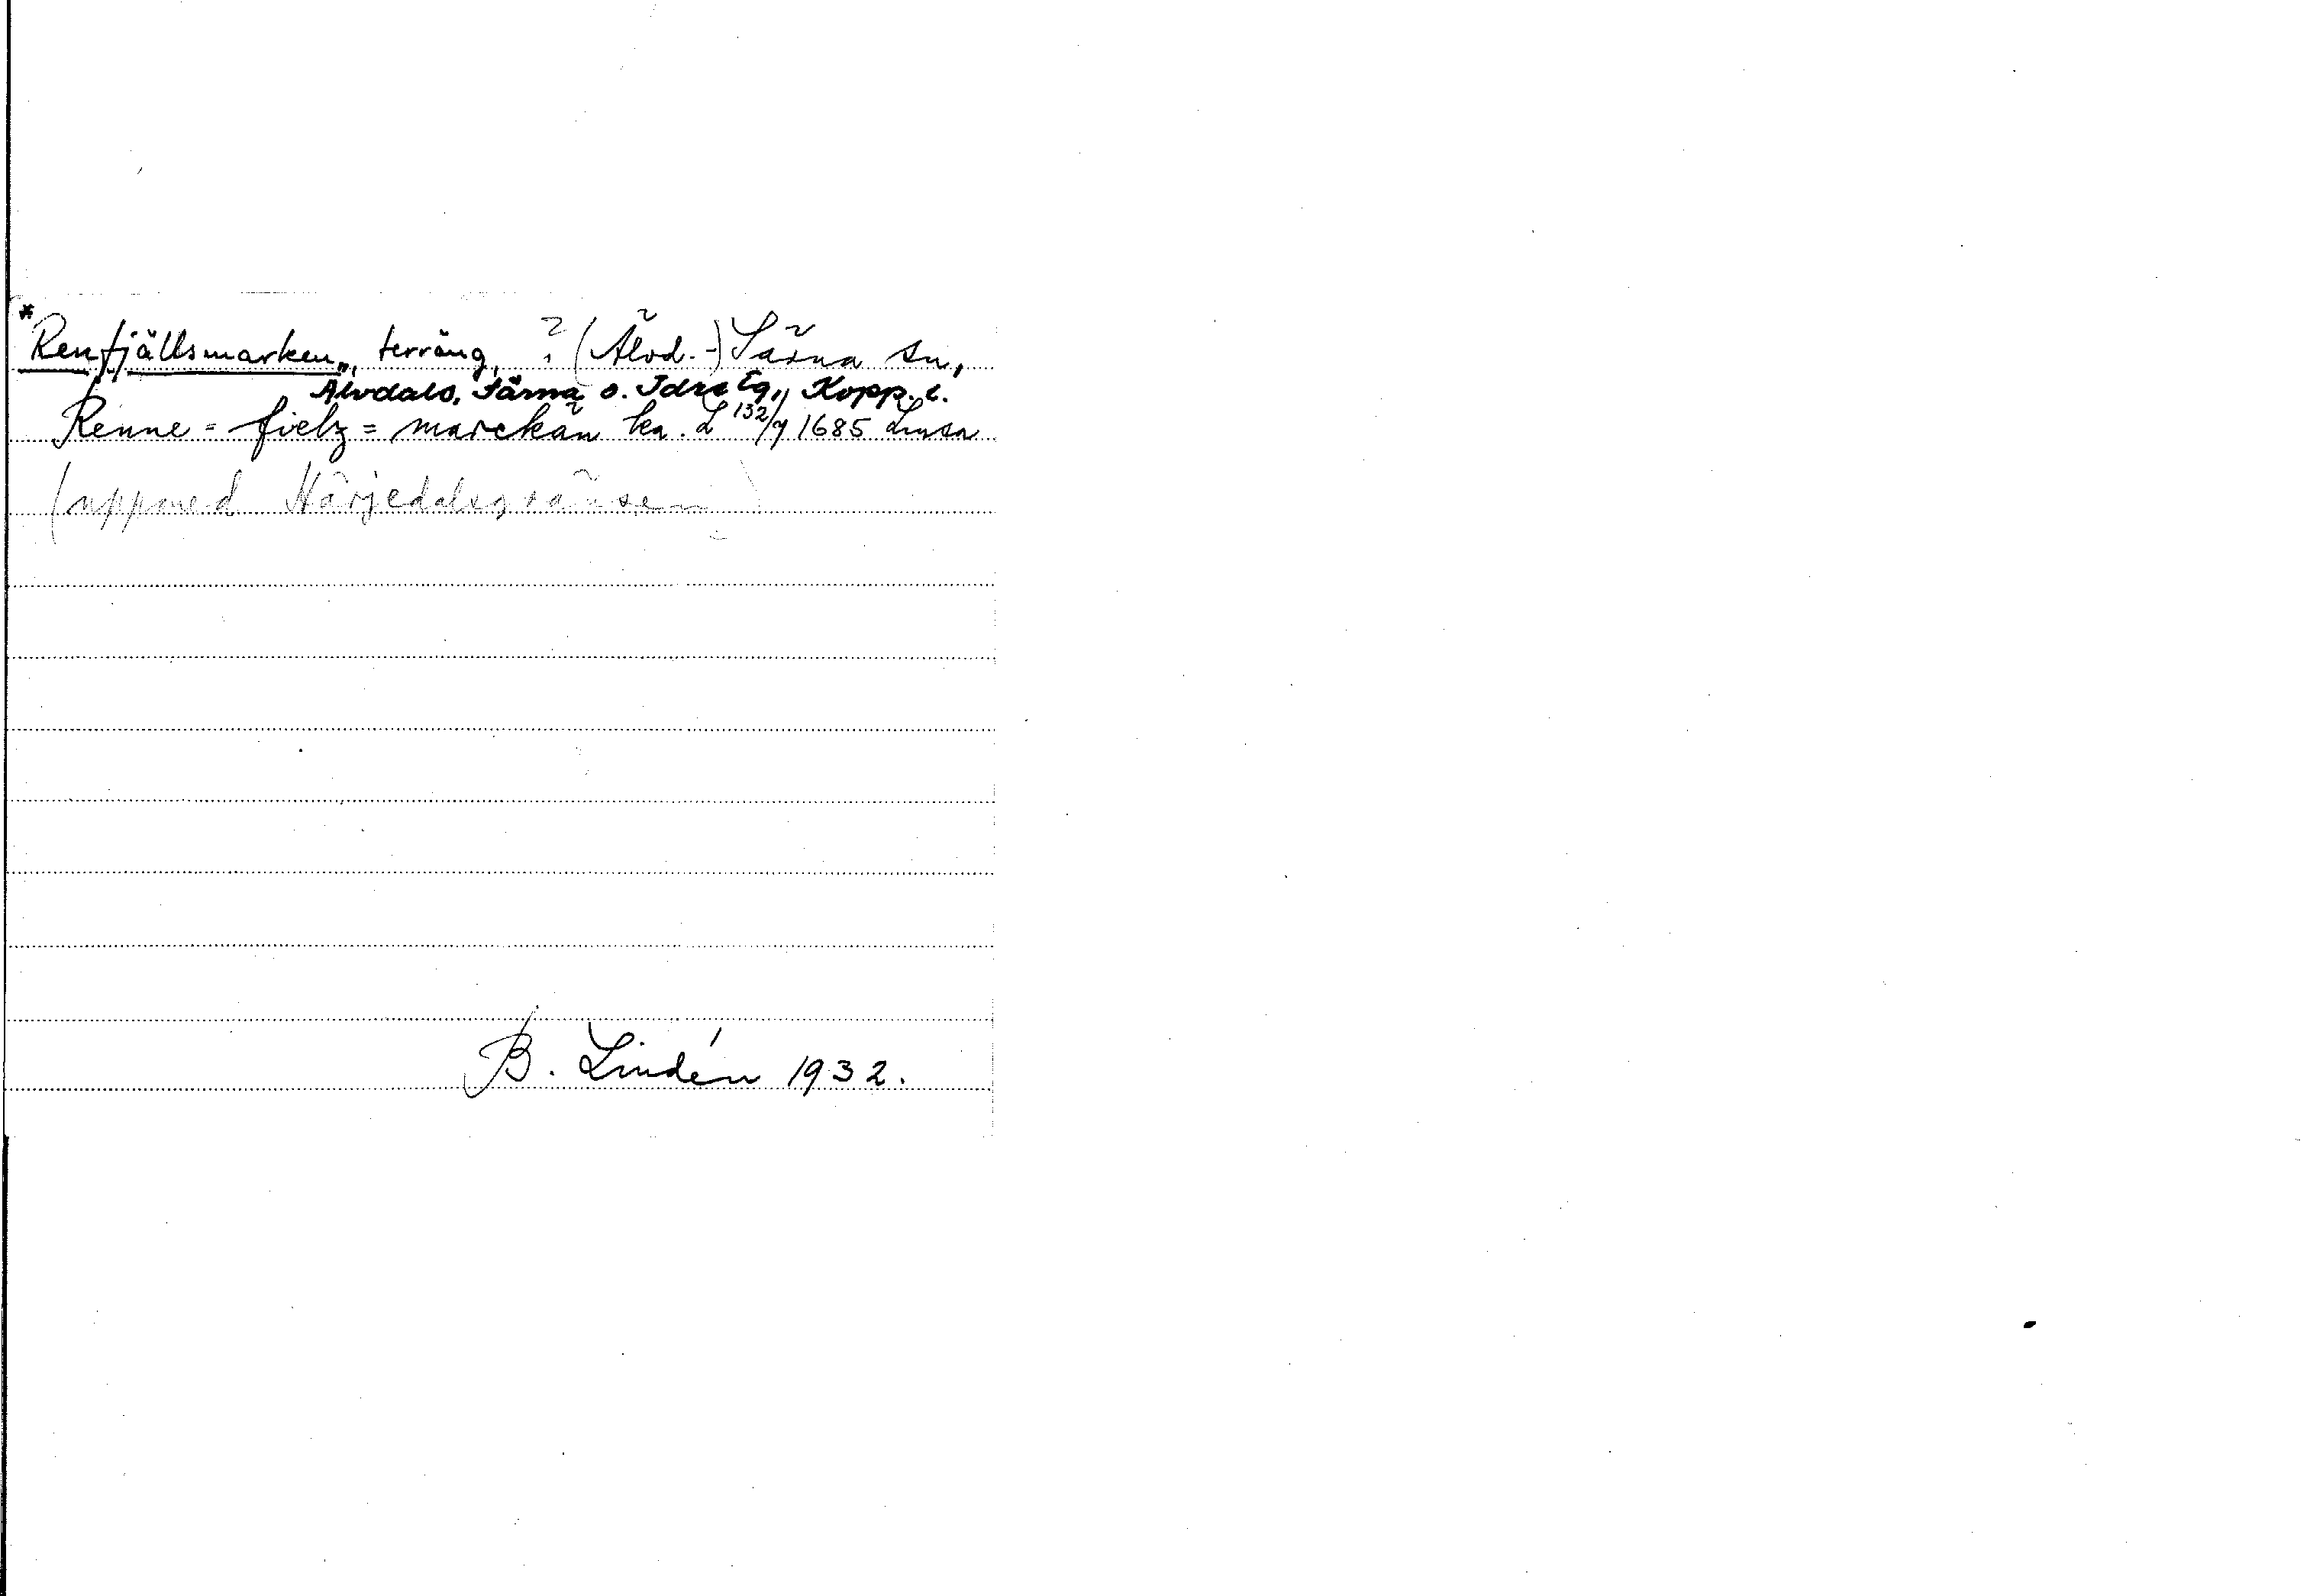 *Renfjällsmarken, terräng, ? (Älvd.-) Särna sn,
Älvdals, Särna o. Idre tg., Kopp. l.
Renne=fielz=marckän ka. L 132/9 1685 Lmsa
(uppmed Härjedalsgränsen)
B. Lindén 1932.